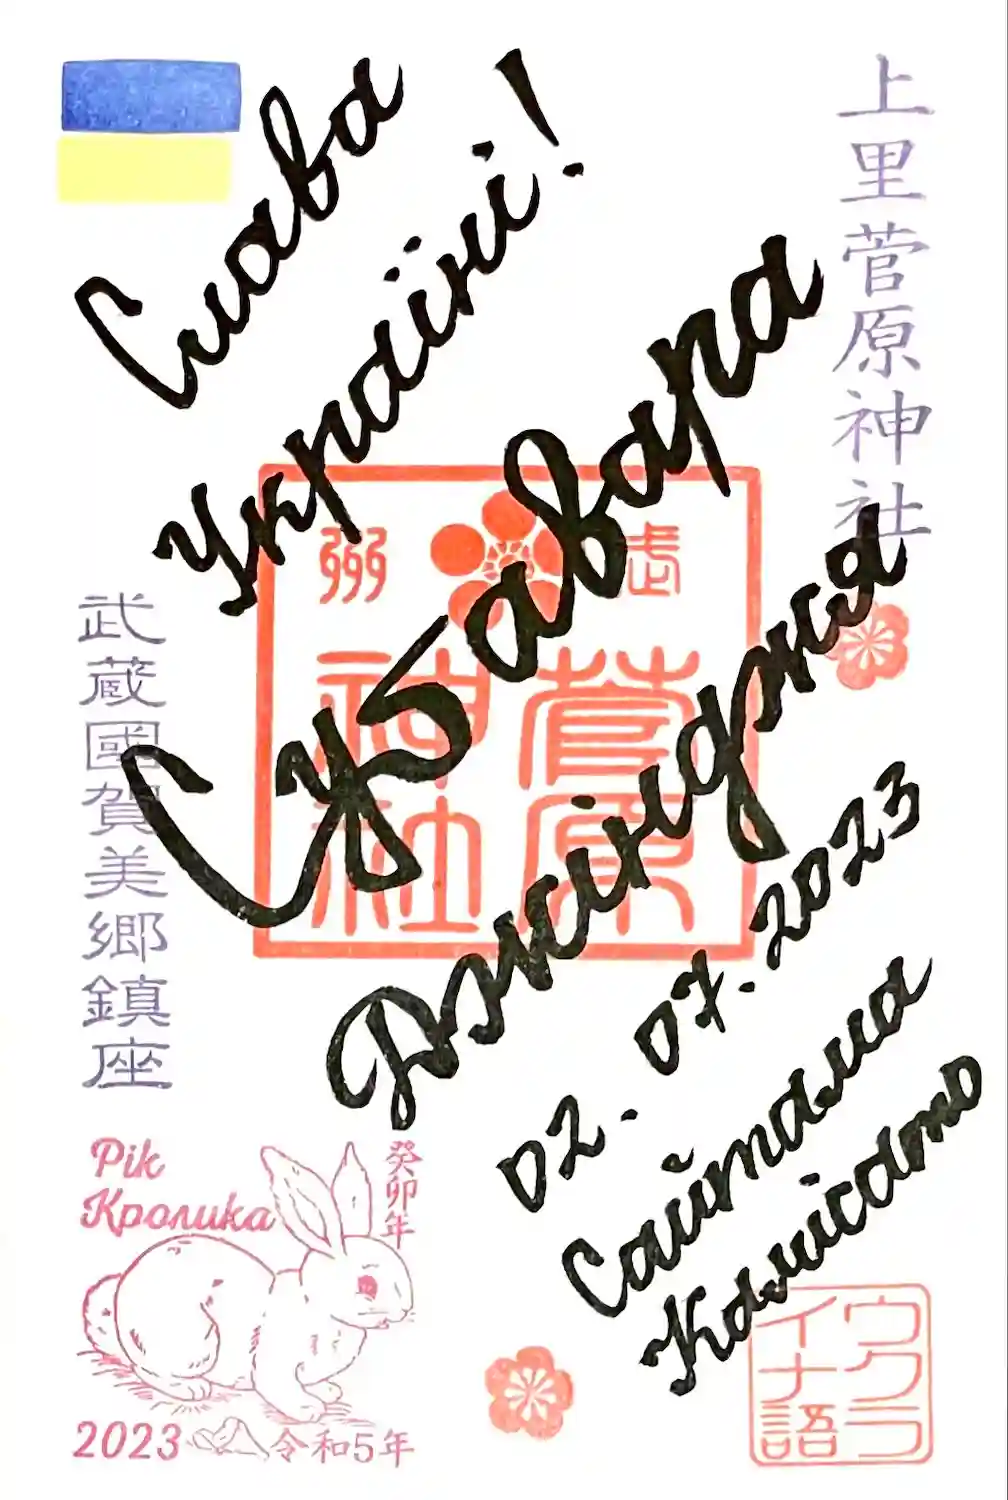 上里菅原神社
Слава
Україні!
Суґавара
Джінджя
02.07.2023
Сайтама
Камісато
武州
菅原
神社
武蔵國賀美郷鎮座
Рік
Кролика
癸卯年
2023 令和5年
ウクラ
イナ語